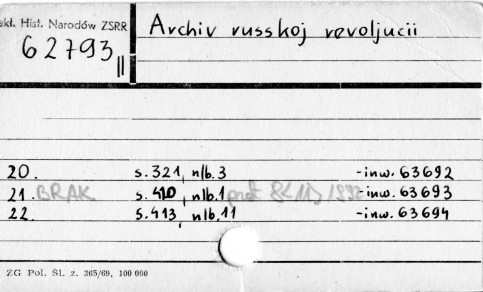 Zakł. Hist. Narodów ZSRR
62793 II
Archiv russkoj revoljucii
20. s.321, nlb.3 -inw. 63692
21. BRAK s. 410, nlb.1 -inw. 63693
22. s.413, nlb.11 -inw. 63694
ZG Pol. Śl. z. 365/69, 100 000